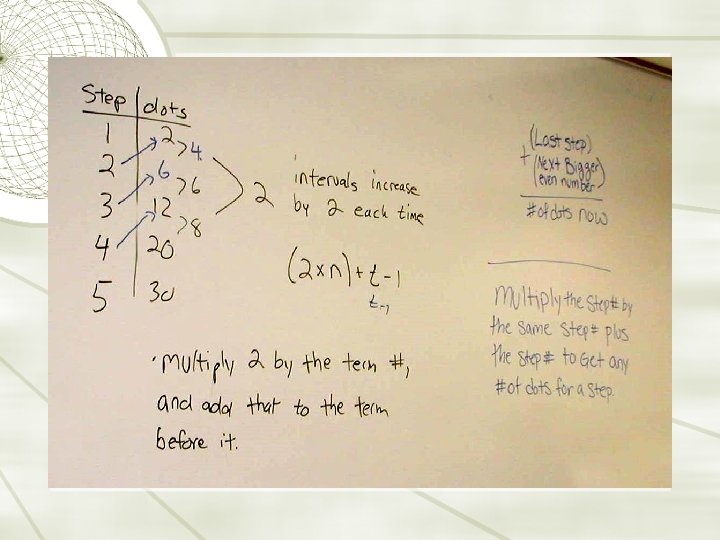 Step dots
1 2
>4
2 6
>6
3 12
>8
4 20
5 30
2
intervals increase
by 2 each time
(2×n)+t-1
t-1
· Multiply 2 by the term #,
and add that to the term
before it.
(Last step)
+ (Next Bigger)
(even number)
#of dots now
Multiply the step# by
the same step# plus
the step# to get any
#of dots for a step.